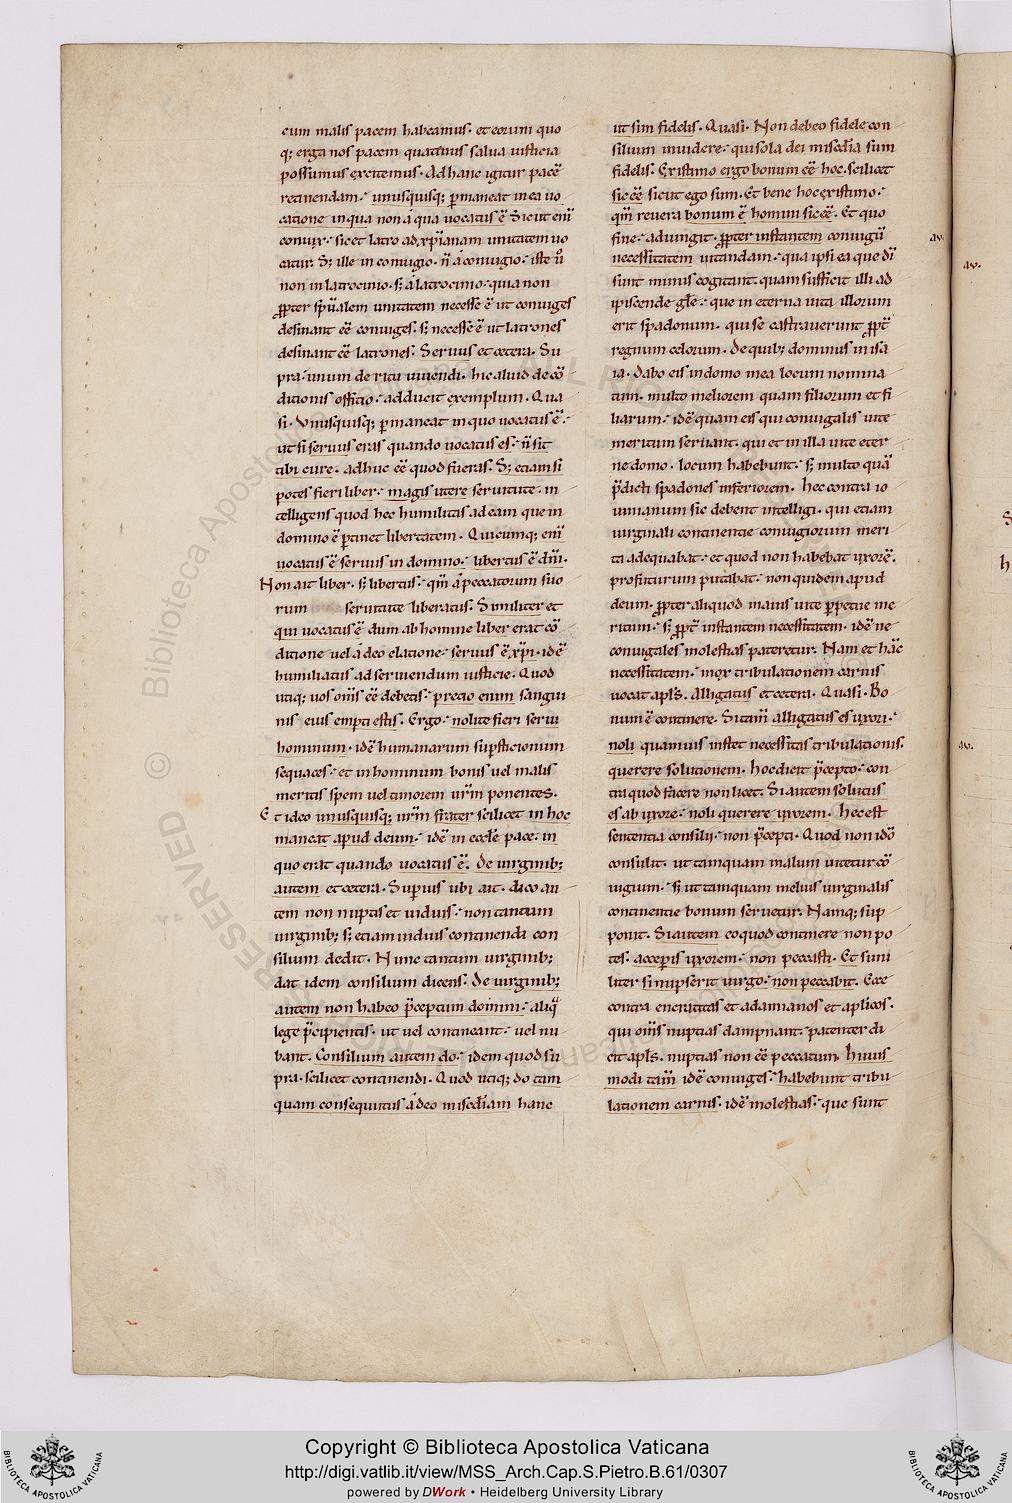 cum malis pacem habeamus. et eorum quo
q; erga nos pacem quatinus salua iusticia
possumus excitemus. Ad hanc igitur pacē
retinendam. unusquisq; ꝑmaneat in ea uo
catione in qua non a qua uocatus ē. Sicut eni
coniux. sic et latro ad xp̄ianam unitatem uo
catur. S; ille in coniugio. n̄ a coniugio. iste u͛o
non in latrocinio. s; a latrocinio. quia non
ꝓpter sp̄ualem unitatem necesse ē ut coniuges
desinant eē coniuges. s; necesse ē ut latrones
desinant eē latrones. Seruus et cetera. Su
pra. unum de ritu uiuendi. hic aliud de cō
ditionis officio. adducit exemplum. Qua
si. Vnusquisq; ꝑmaneat in quo uocatus ē.
ut si seruus eras quando uocatus es. n̄ sit
tibi cure. adhuc eē quod fueras. S; etiam si
potes fieri liber. magis utere seruitute. in
telligens quod hec humilitas ad eam que in
domino ē ꝑtinet libertatem. Quicumq; eni
uocatus ē seruus in domino. libertus ē dn̄i.
Non ait liber. s; libertus. qm̄ a peccatorum suo
rum seruitute liberatus. Similiter et
qui uocatus ē dum ab homine liber erat cō
ditione uel a deo elatione. seruus ē xp̄i. idē
humiliatus ad seruiendum iusticie. Quod
utiq; uos om̄s eē debetis. precio enim sangui
nis eius empti estis. Ergo. nolite fieri serui
hominum. idē humanarum suꝑsticionum
sequaces. et in hominum bonis uel malis
meritis spem uel timorem ur̄m ponentes.
Et ideo unusquisq; ur̄m frater scilicet in hoc
maneat apud deum. idē in eccl̄e pace. in
quo erat quando uocatus ē. De uirginib;
autem et cetera. Suꝑius ubi ait. dico au
tem non nuptis et uiduis. non tantum
uirginib; s; etiam uiduis continendi con
silium dedit. Nunc tantum uirginib;
dat idem consilium dicens. De uirginib;
autem non habeo p̄ceptum domini. aliq
lege p̄cipientis. ut uel contineant. uel nu
bant. Consilium autem do. idem quod su
pra. scilicet continendi. Quod utiq; do tam
quam consequutus a deo misedīam hanc
ut sim fidelis. Quasi. Non debeo fidele con
silium inuidere. qui sola dei misedīa sum
fidelis. Existimo ergo bonum eē hoc. scilicet
sic eē sicut ego sum. Et bene hoc existimo.
qm̄ reuera bonum ē homini sic eē. Et quo
fine. adiungit. ꝓpter instantem coniugii
necessitatem uitandam. qua ipsi ea que dī
sunt minus cogitant. quam sufficit illi ad
ipiscende gl̄e. que in eterna uita illorum
erit spadonum. qui se castrauerunt ꝓpt̄
regnum celorum. De quib; dominus in isa
ia. Dabo eis in domo mea locum nomina
tum. multo meliorem quam filiorum et fi
liarum. idē quam eis qui coniugalis uite
meritum seruant. qui et in illa uite eter
ne domo. locum habebunt. s; multo quā
p̄dicti spadones inferiorem. hec contra io
uinianum sic debent intelligi. qui etiam
uirginali continentie coniugiorum meri
ta adequabat. et quod non habebat uxorē.
profuturum putabat. non quidem apud
deum. ꝓpter aliquod maius uite ꝑpetue me
ritum. s; ꝓpt̄ instantem necessitatem. idē ne
coniugales molestias pateretur. Nam et hāc
necessitatem. mox tribulationem carnis
uocat apl̄s. Alligatus et cetera. Quasi. Bo
num ē continere. Si tam̄ alligatus es uxori.
noli quamuis instet necessitas tribulationis.
querere solutionem. hoc dicit p̄cepto. con
tra quod facere non licet. Si autem solutus
es ab uxore. noli querere uxorem. Hec est
sententia consilii. non p̄cepti. Quod non idō
consulit. ut tamquam malum uitetur cō
iugium. s; ut tamquam melius uirginalis
continentie bonum seruetur. Namq; sup
ponit. Si autem eo quod continere non po
tes. acceperis uxorem. non peccasti. Et simi
liter si nupserit uirgo. non peccabit. Ecce
contra encratitas et adamianos et aplicos.
qui om̄s nuptias dampnant. patenter di
cit apl̄s. nuptias non eē peccatum. huius
modi tam̄ idē coniuges. habebunt tribu
lationem carnis. idē molestias. que sunt
av.
av.
av.
S
h
© Biblioteca Apostolica Vaticana ALL RIGHTS RESERVED
BIBLIOTECA APOSTOLICA VATICANA
Copyright © Biblioteca Apostolica Vaticana
http://digi.vatlib.it/view/MSS_Arch.Cap.S.Pietro.B.61/0307
powered by DWork • Heidelberg University Library
BIBLIOTECA APOSTOLICA VATICANA